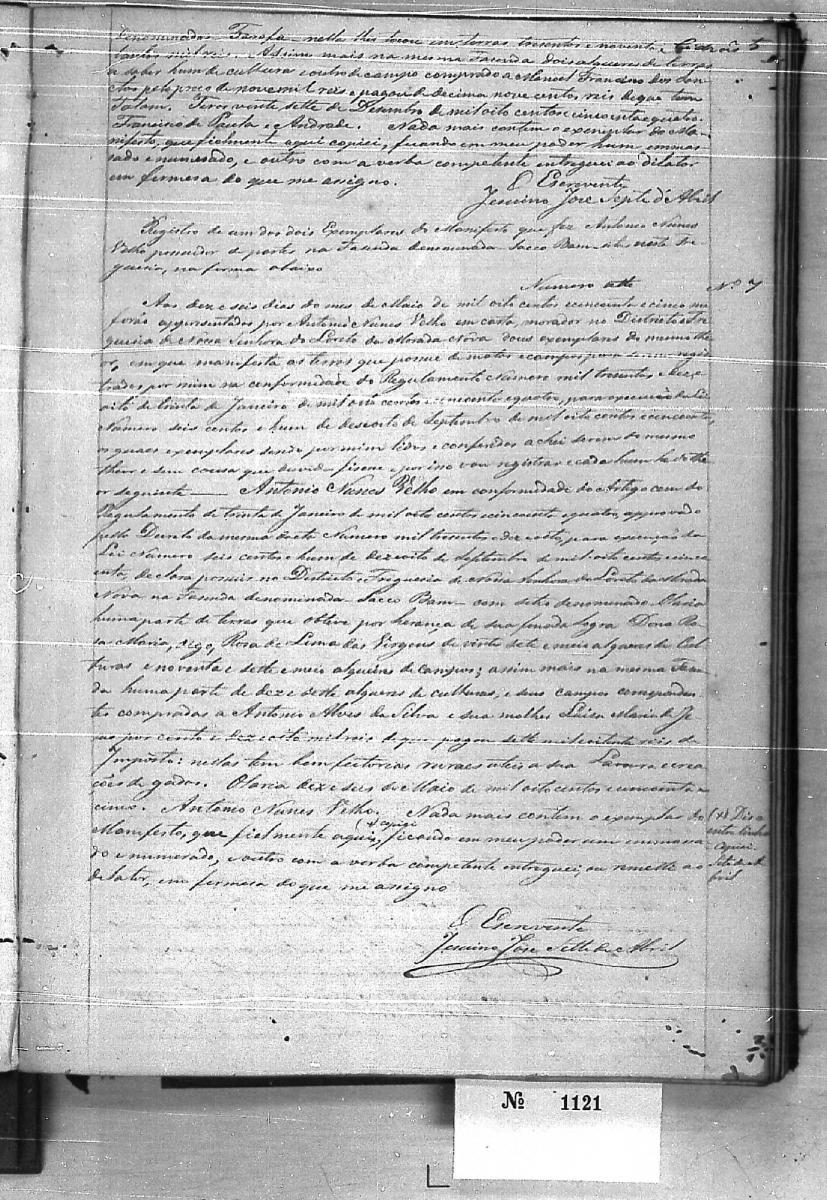 denominada Farofa nella lhe tocou em terras tresentos e noventa e
tantos mil reis. Assim mais na mesma Fasenda dois alqueires de terras
a saber hum de cultura e outro de campo comprado a Manoel Francisco dos San-
tos pelo preço de nove mil reis e pagou de decima nove centos reis de que tem
Talam. vinte sette de Desembro de mil oito centos cincoenta e quatro.
Francisco de Paula e Andrade. Nada mais contem o exemplar do Ma-
nifesto, que fielmente aqui copiei, ficando em meu poder hum emmas-
sado e numerado, e outro com a verba competente entreguei ao dilator
em firmesa do que me assigno.
O Escrevente
Jesuino Jose Septe d'Abril
Registro de um dos dois Exemplares do Manifesto que fez Antonio Nunes
Velho possuidor de partes na Fasenda denominada Sacco Bam sita nesta Fre-
guesia, na forma abaixo
Numero sette
Nº 7
Aos dez e seis dias do mes de Maio de mil oito centos e cincoenta e cinco me
forão appresentados por Antonio Nunes Velho em carta, morador no Districto e Fre-
guesia de Nossa Senhora do Loreto da Morada Nova dous exemplares do mesmo the-
or, em que manifesta as terras que possue de matos e campos para serem regis-
trados por mim na conformidade do Regulamento Numero mil tresentos e deze-
oito de trinta de Janeiro de mil oito centos e cincoenta e quatro, para execução da Lei
Numero seis centos e hum de desoito de Septembro de mil oito centos e cincoenta,
os quaes exemplares sendo por mim lidos e conferidos achei serem do mesmo
theor e sem cousa que duvida fisesse e por isso vou registrar e cada hum he do the-
or seguinte — Antonio Nunes Velho em conformidade do Artigo cem do
Regulamento de trinta de Janeiro de mil oito centos e cincoenta e quatro, approvado
pelo Decreto da mesma data Numero mil tresentos e dez e oito, para execução da
Lei Numero seis centos e hum de dezeoito de Septembro de mil oito centos e cinco-
enta, declara possuir no Districto e Freguesia de Nossa Senhora do Loreto da Morada
Nova na Fasenda denominada Sacco Bam com sitio denominado Olaria
huma parte de terras que obteve por herança de sua finada Sogra Dona Ro-
sa Maria, digo, Rosa de Lima das Virgens de vinte sete e meio alqueires de Cul-
turas e noventa e sette e meio alqueires de campos; assim mais na mesma Fasen-
da huma parte de deze sette alqueires de culturas, e seus campos corresponden-
tes comprados a Antonio Alves da Silva e sua molher Luisa Maria de Je-
sus por cento e deze oito mil reis de que pagou sette mil e oitenta reis de
Imposto: nellas tem bemfeitorias ruraes uteis a sua Lavoura e crea-
ções de gados. Olaria deze seis de Maio de mil oito centos e cincoenta e
cinco. Antonio Nunes Velho. Nada mais contem o exemplar do
Manifesto, que fielmente aqui (x) copiei, ficando em meu poder um emmassa-
do e numerado, e outro com a verba competente entreguei, ou remetto ao
dilator, em firmesa do que me assigno
(x) Diz a
entre linha
copiei.
Sete de A-
bril
O Escrevente
Jesuino Jose Sette de Abril
Nº 1121